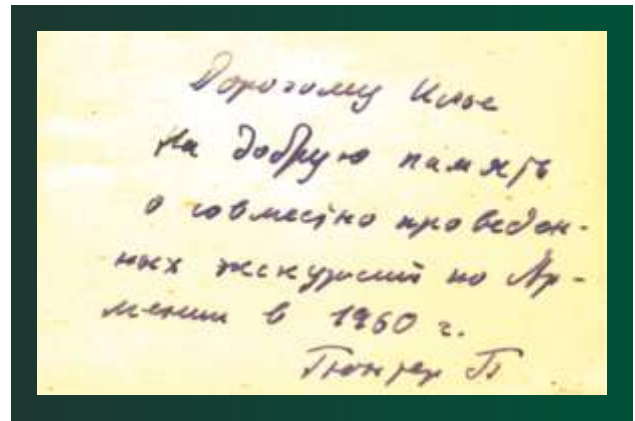 Дорогому Илье
на добрую память
о совместно проведен-
ных экскурсий по Ар-
мении в 1960 г.
Гюнтер П